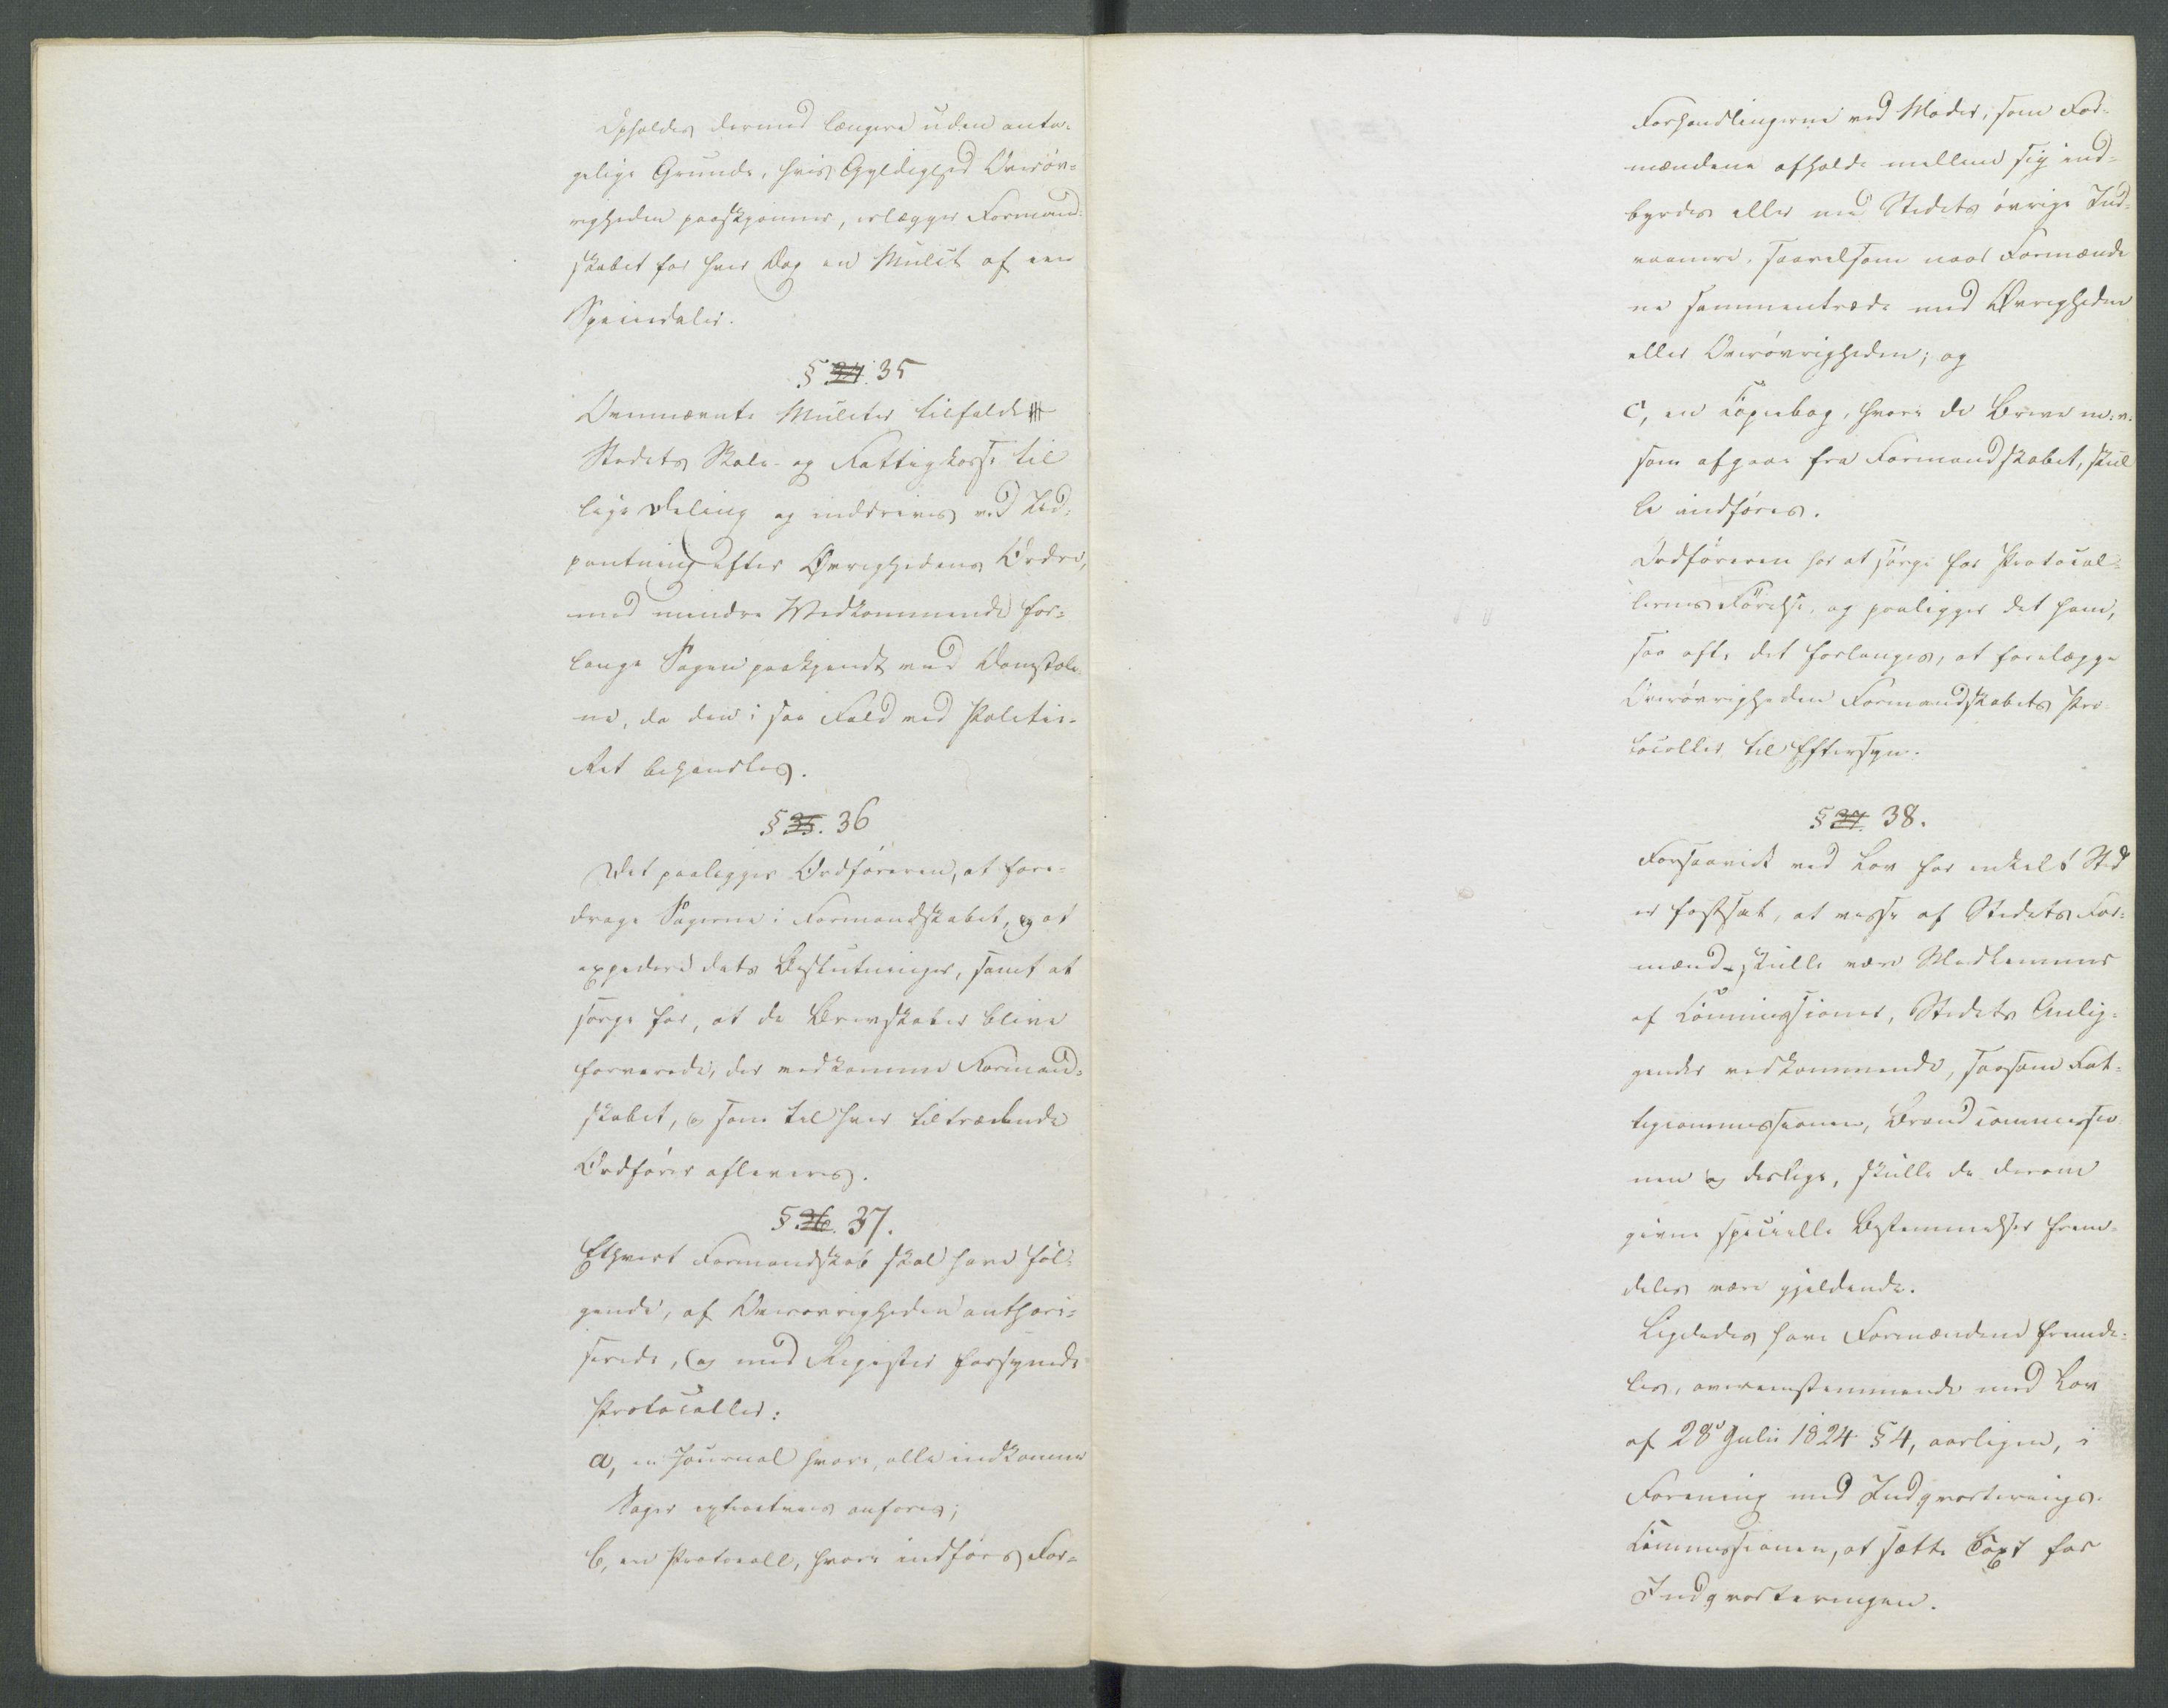 Opholdes dermed længere uden anta-
gelige Grunde, hvis Gyldighed Overöv-
righeden paaskjönner, erlægger Formand-
skabet for hver Dag en Mulct af een
Speciedaler.
§ 34. 35
Ovennævnte Mulcter tilfalde
Stedets Skole- og Fattigkasse til
lige Deling og inddrives ved Ud-
pantning efter Øvrighedens Ordre,
med mindre Vedkommende for-
lange Sagen paakjendt ved Domstole-
ne, da den i saa Fald ved Politie-
Ret behandles.
§ 35. 36
Det paalegger Ordföreren, at fore-
drage Sagerne i Formandskabet, og at
expedere dets Beslutninger, samt at
sörge for, at de Brevskaber blive
forvarede, der vedkomme Formand-
skabet, og som til hver tiltrædende
Ordförer afleveres.
§ 36. 37.
Ethvert Formandskab skal have föl-
gende, af Overövrigheden authori-
serede, og med Register forsynede
Protocoller:
a, en Journal hvori, alle indkomne
Sager extractviis anföres;
b, en Protocoll, hvori indförs For-
Forhandlingerne ved Möder, som For-
mændene afholde mellem sig ind-
byrdes eller med Stedets övrige Ind-
vaanere, saavelsom naar Formænde
ne sammentræde med Øvrigheden
eller Overövrigheden; og
c, en Copiebog, hvori de Breve m: v:
som afgaae fra Formandskabet, skul
le indföres.
Ordföreren har at sörge for Protocol-
lernes Förelse, og paaligger det ham,
saa ofte det forlanges, at forelægge
Overövrigheden Formandskabets Pro-
tocoller til Eftersyn.
§ 37. 38.
Forsaavidt ved Lov for enkelt Sted
er fastsat, at visse af Stedets For-
mænd skulle være Medlemmer
af Commissioner, Stedets Anlig-
gender vedkommende, saasom Fat-
tigcommissionen, Brandcommissio
nen og deslige, skulle de derom
givne specielle Bestemmelser frem-
deles være gjeldende.
Ligeledes have Formændene fremde-
les, overeensstemmende med Lov
af 28de Julii 1824 § 4, aarligen, i
Forening med Indqvarterings-
Commissionen, at sætte Taxt for
Indqvarteringen.